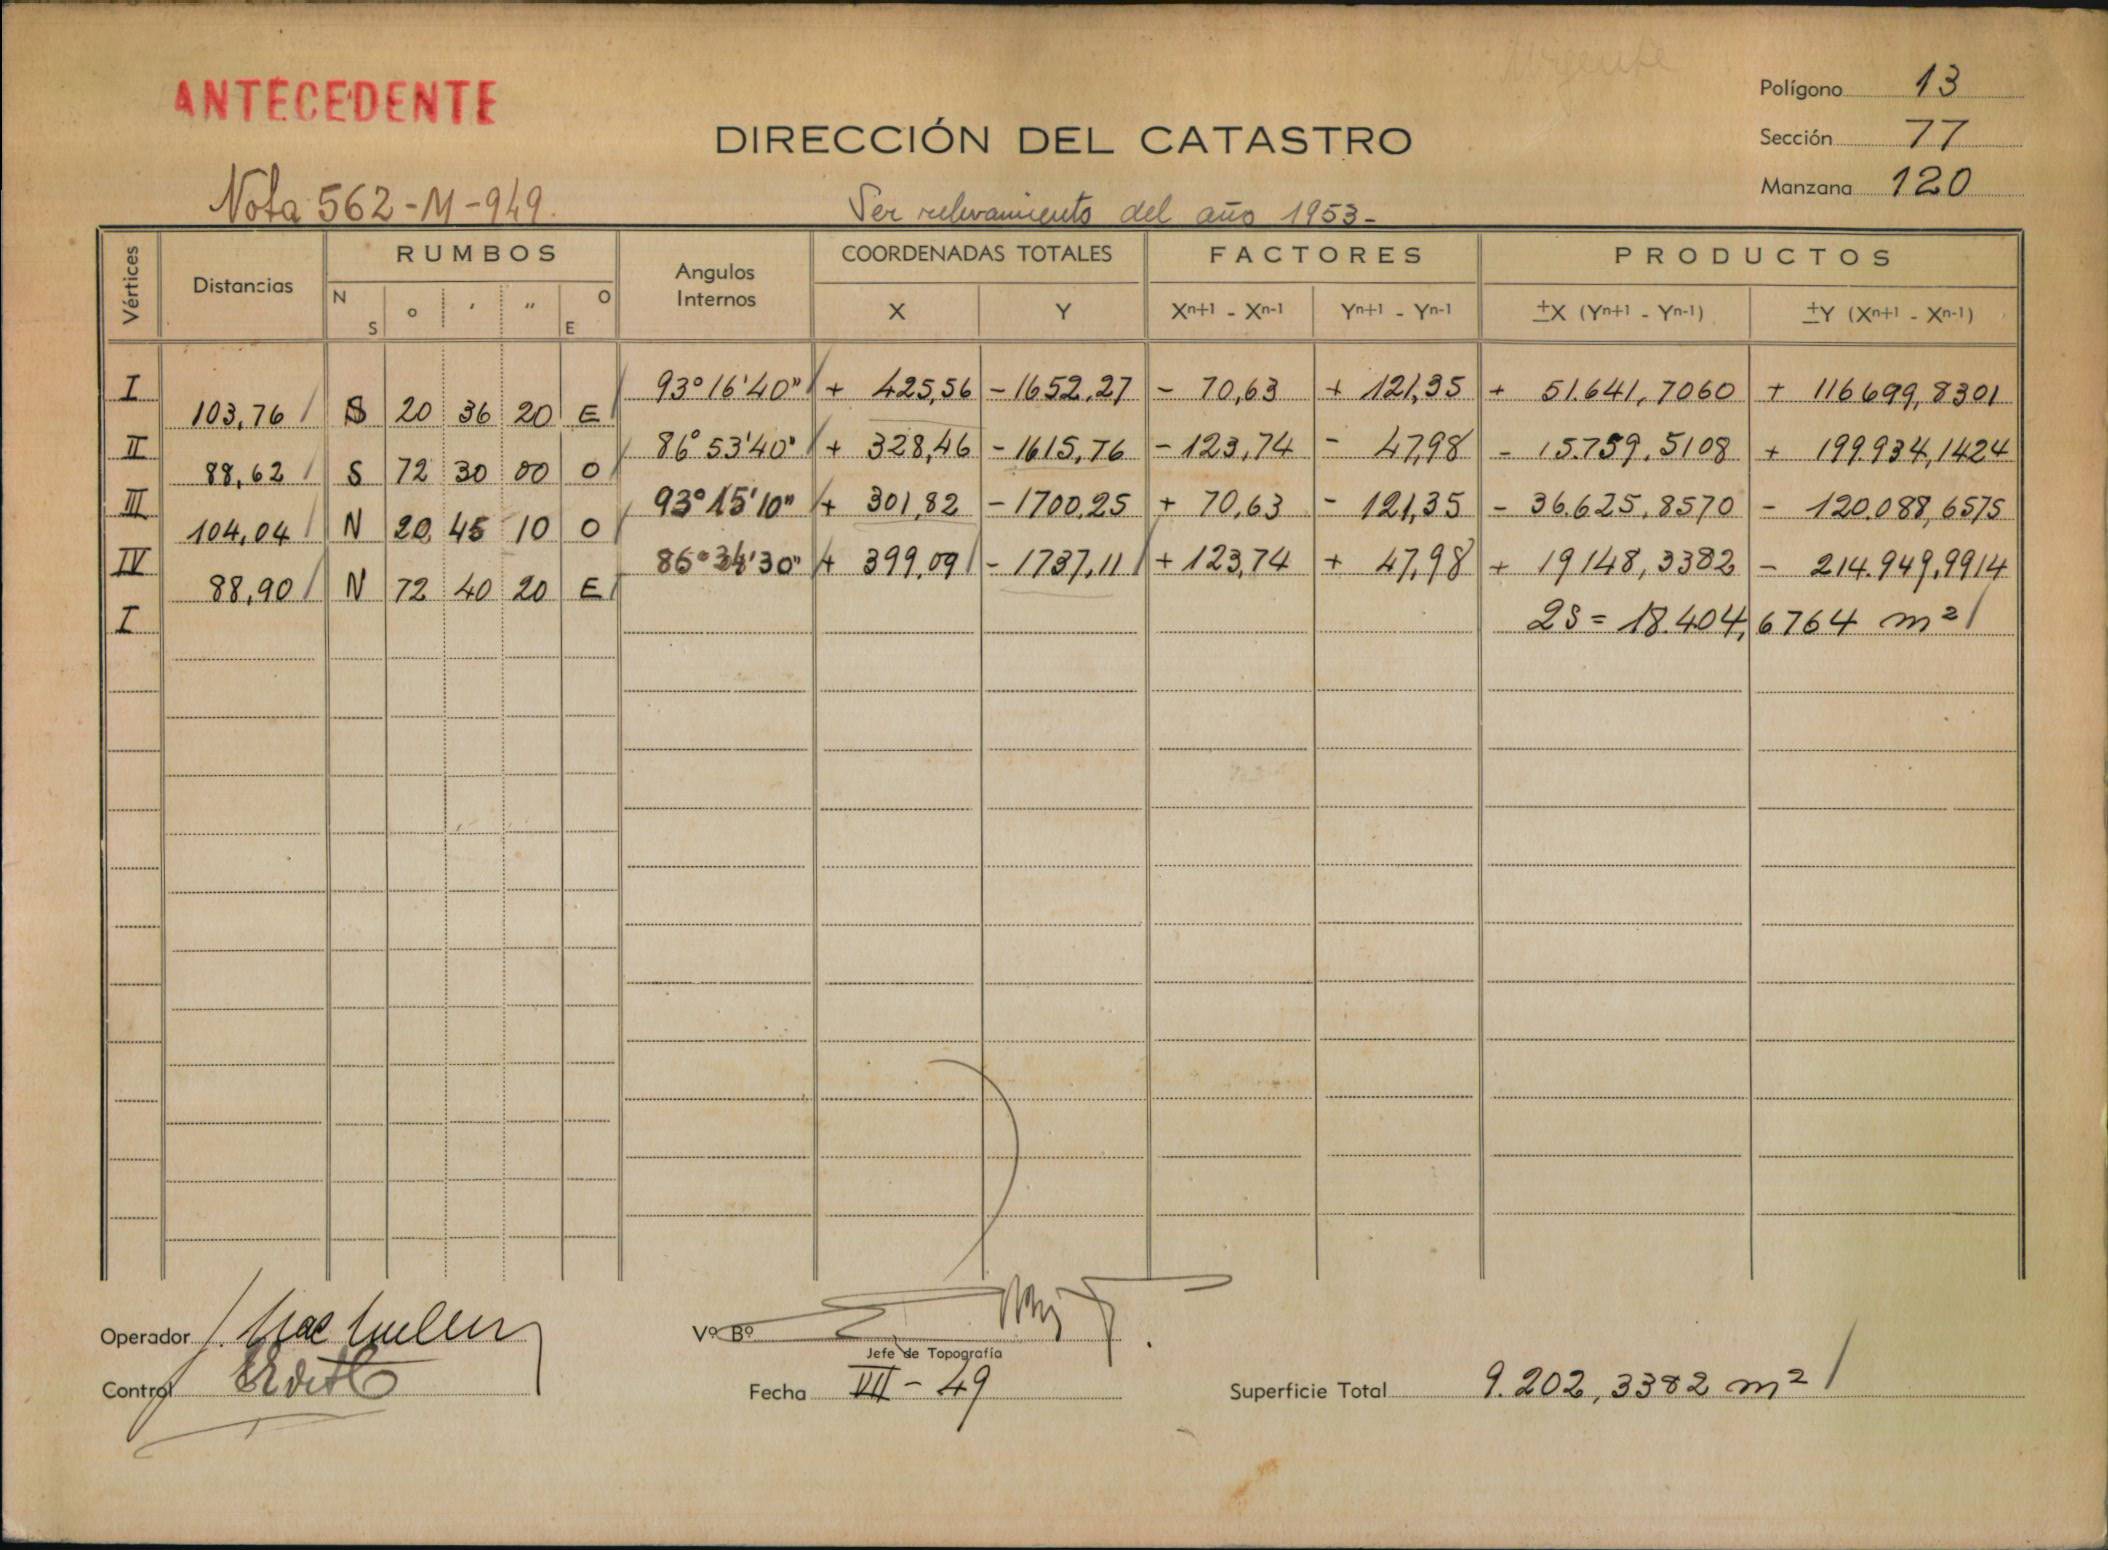 Urgente
Polígono 13
ANTECEDENTE
DIRECCIÓN DEL CATASTRO
Sección 77
Manzana 120
Nota 562-M-949.
Ver relevamiento del año 1953-
Vértices Distancias RUMBOS Angulos Internos COORDENADAS TOTALES FACTORES PRODUCTOS
N S ° ' " E O X Y Xn+1 - Xn-1 Yn+1 - Yn-1 ±X (Yn+1 - Yn-1) ±Y (Xn+1 - Xn-1)
I 93°16'40" + 425,56 -1652,27 - 70,63 + 121,35 + 51.641,7060 + 116699,8301
103,76 S 20 36 20 E
II 86°53'40" + 328,46 -1615,76 -123,74 - 47,98 - 15.759,5108 + 199.934,1424
88,62 S 72 30 00 O
III 93°15'10" + 301,82 -1700,25 + 70,63 - 121,35 - 36.625,8570 - 120.088,6575
104,04 N 20 45 10 O
IV 86°34'30" + 399,09 -1737,11 +123,74 + 47,98 + 19148,3382 - 214.949,9914
88,90 N 72 40 20 E
I 2S = 18.404,6764 m²
Operador
Vº Bº
Jefe de Topografía
Control
Fecha VII - 49
Superficie Total 9.202,3382 m²